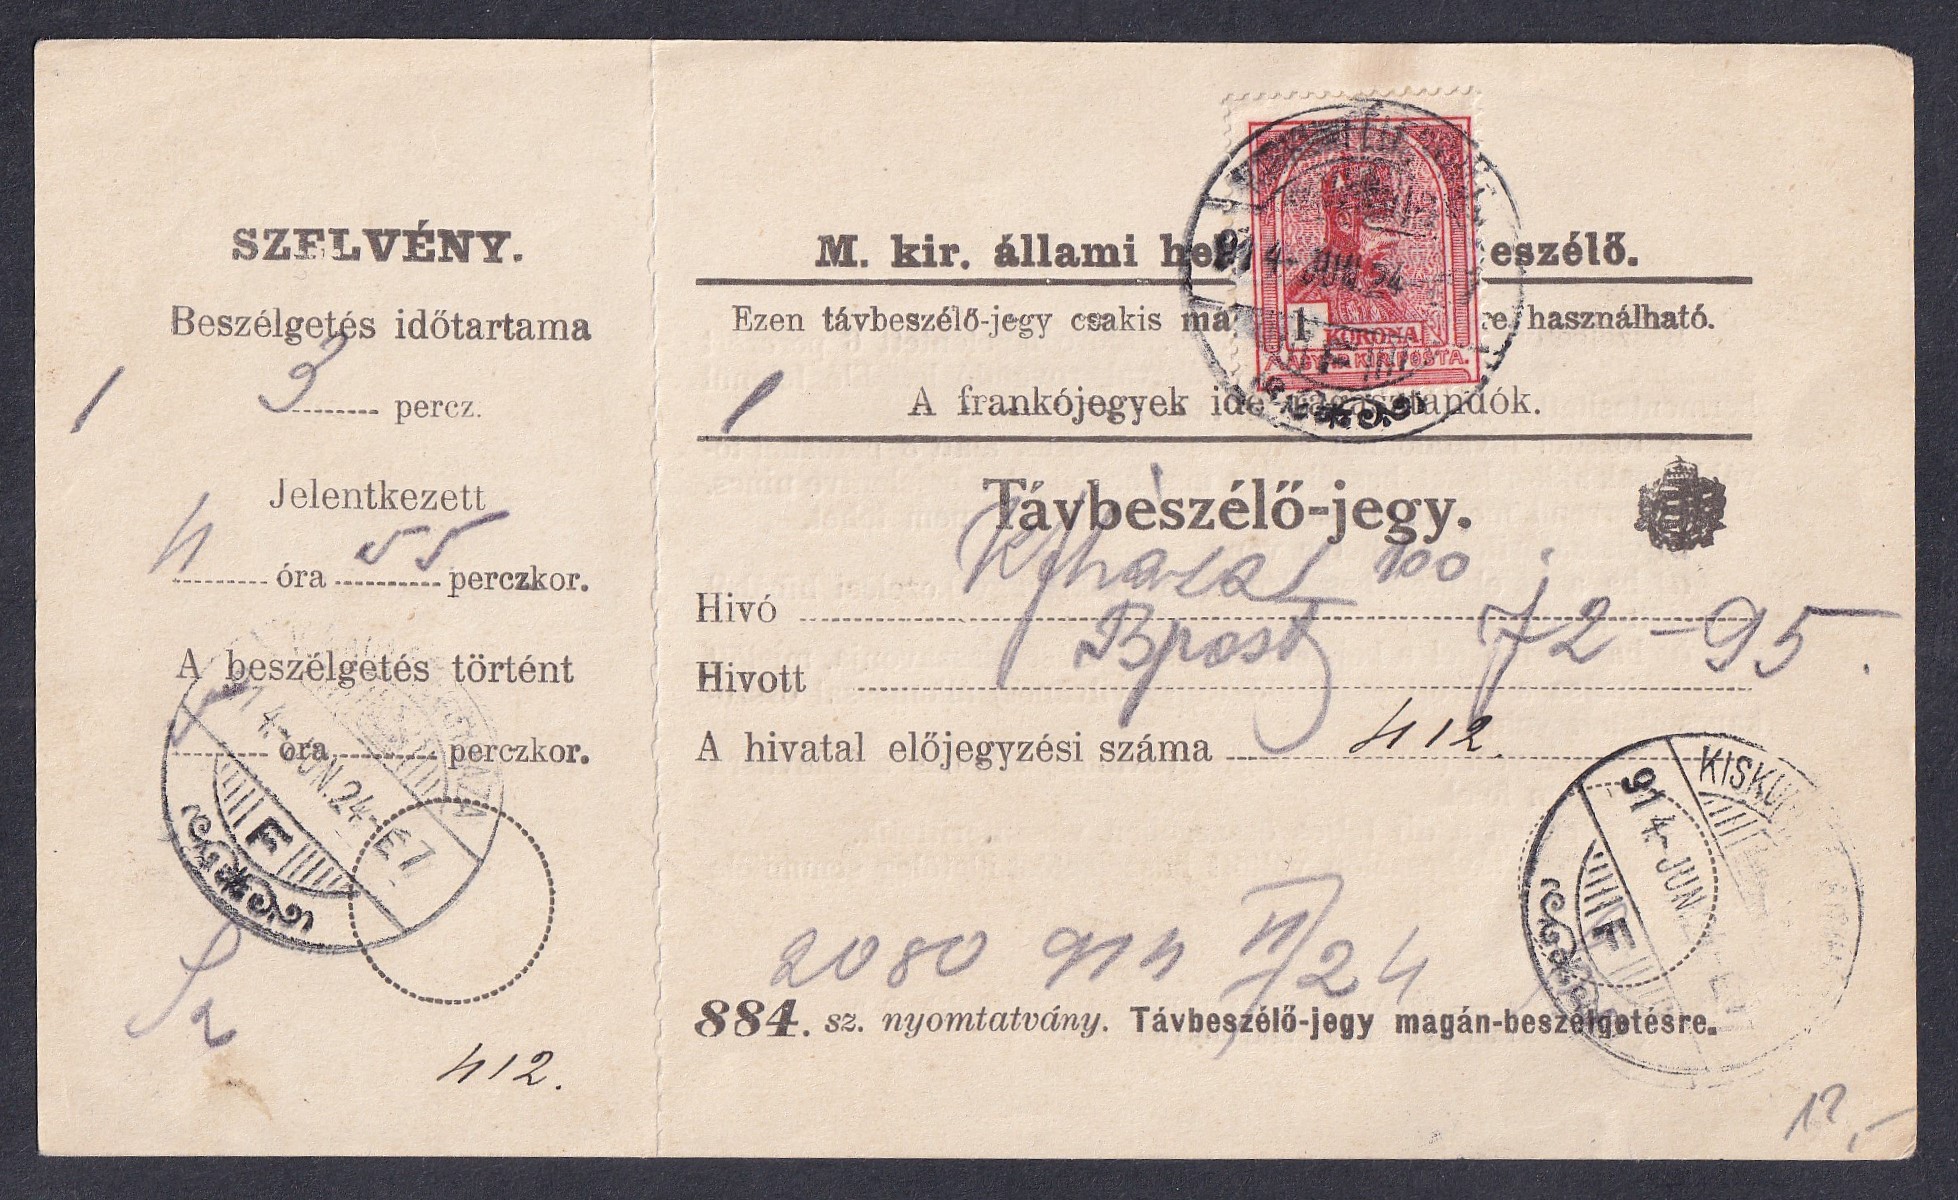 SZELVÉNY.
Beszélgetés időtartama
1 3 percz.
Jelentkezett
4 óra 55 perczkor.
A beszélgetés történt
5 óra perczkor.
914 JUN. 24 E7
F
412.
M. kir. állami eszélő.
Ezen távbeszélő-jegy csakis használható.
1 A frankójegyek ide ragasztandók.
1 KORONA
MAGYAR KIR. POSTA.
914 JUN. 24
F
Távbeszélő-jegy.
Hivó 100
Hivott Bpest 72-95.
A hivatal előjegyzési száma 412.
KISKU
914 JUN
F
2080 914 VI/24
884. sz. nyomtatvány. Távbeszélő-jegy magán-beszélgetésre.